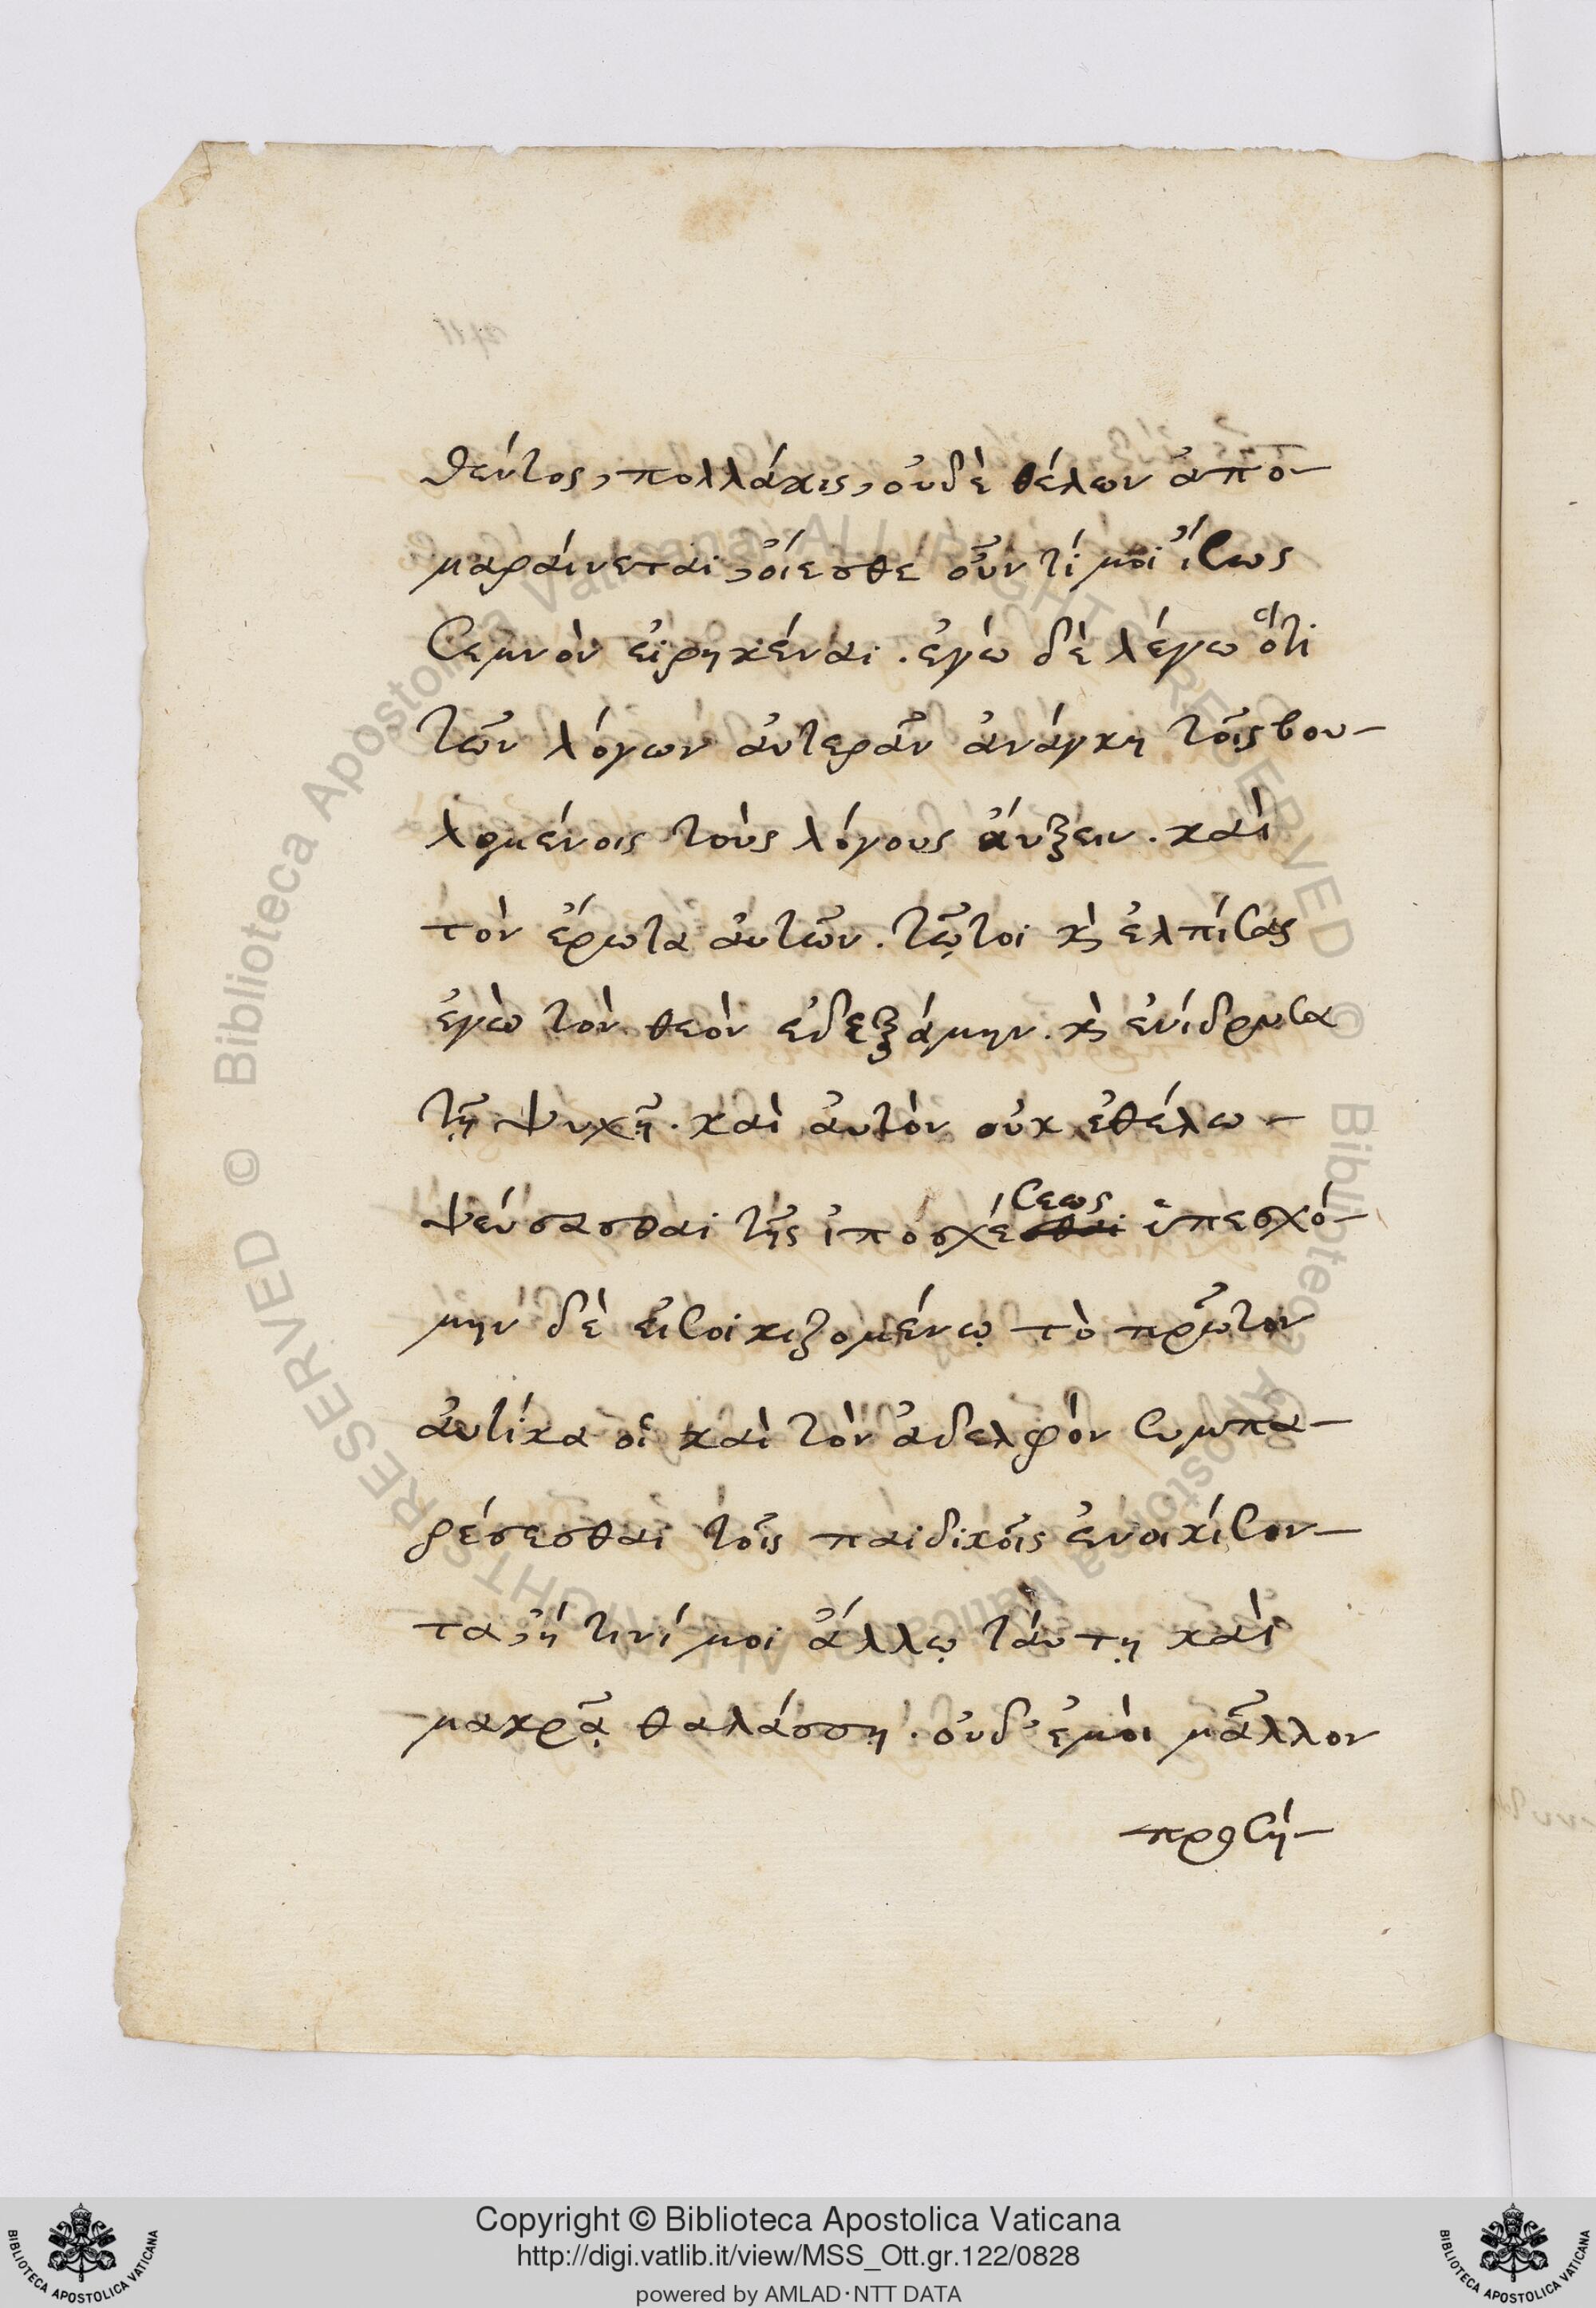 θέντος, πολλάκις, οὐδὲ θέλων ἀπο-
μαραίνεται, οἴεσθε οὖν τί μοι ἴσως
σεμνὸν εἰρηκέναι. ἐγὼ δὲ λέγω ὅτι
τῶν λόγων ἀντερᾶν ἀνάγκη τοῖς βου-
λομένοις τοὺς λόγους ἄυξειν. καὶ
τὸν ἔρωτα ἀυτῶν. τῷτοι κ̀ ἐλπίσας
ἐγὼ τὸν θεὸν ἐδεξάμην. κ̀ ἐνίδρυσα
τῇ ψυχῇ. καὶ ἀυτὸν οὐκ ἐθέλω-
ψεύσασθαι τῆς ὑποσχέσεως ὑπεσχό-
μην δὲ εἰσοικιζομένῳ τὸ πρῶτον
ἀυτίκα οἱ καὶ τὸν ἀδελφὸν συμπα-
ρέσεσθαι τοῖς παιδικοῖς ἐνοικίσον-
τα, ἤ τινί μοι ἄλλῳ ταύτῃ καὶ
μακρᾷ θαλάσσῃ. οὐδ' ἐμοὶ μᾶλλον
προσή-
Copyright © Biblioteca Apostolica Vaticana
http://digi.vatlib.it/view/MSS_Ott.gr.122/0828
powered by AMLAD·NTT DATA